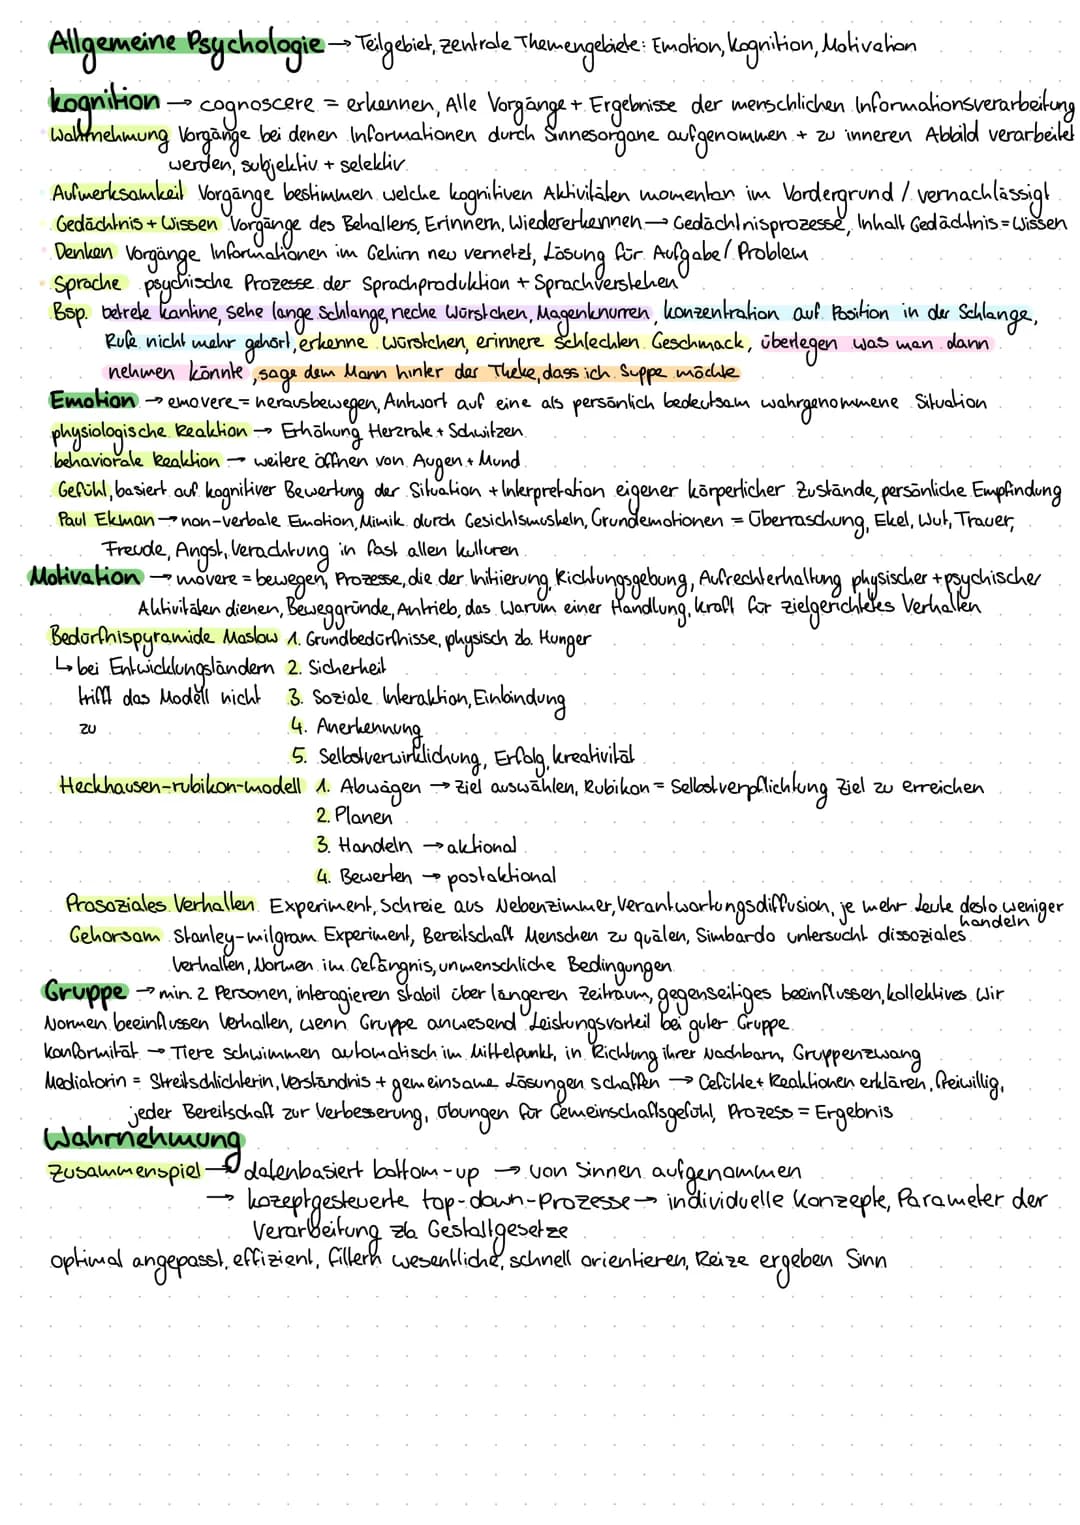 Allgemeine Psychologie → Teilgebiet, zentrale Themengebiete: Emotion, Kognition, Motivation
Kognition → cognoscere = erkennen, Alle Vorgänge + Ergebnisse der menschlichen Informationsverarbeitung
Wahrnehmung Vorgänge bei denen Informationen durch Sinnesorgane aufgenommen + zu inneren Abbild verarbeitet
werden, subjektiv + selektiv
Aufmerksamkeit Vorgänge bestimmen welche kognitiven Aktivitäten momentan im Vordergrund / vernachlässigt
Gedächtnis + Wissen Vorgänge des Behaltens, Erinnern, Wiedererkennen → Gedächtnisprozesse, Inhalt Gedächtnis = Wissen
Denken Vorgänge Informationen im Gehirn neu vernetzt, Lösung für Aufgabe / Problem
Sprache psychische Prozesse der Sprachproduktion + Sprachverstehen
Bsp. betrete Kantine, sehe lange Schlange, rieche Würstchen, Magenknurren, Konzentration auf Position in der Schlange,
Rufe nicht mehr gehört, erkenne Würstchen, erinnere schlechten Geschmack, überlegen was man dann
nehmen könnte, sage dem Mann hinter der Theke, dass ich Suppe möchte
Emotion → emovere = herausbewegen, Antwort auf eine als persönlich bedeutsam wahrgenommene Situation
physiologische Reaktion → Erhöhung Herzrate + Schwitzen
behaviorale Reaktion → weitere öffnen von Augen + Mund
Gefühl, basiert auf kognitiver Bewertung der Situation + Interpretation eigener körperlicher Zustände, persönliche Empfindung
Paul Ekman → non-verbale Emotion, Mimik durch Gesichtsmuskeln, Grundemotionen = Überraschung, Ekel, Wut, Trauer,
Freude, Angst, Verachtung in fast allen Kulturen
Motivation → movere = bewegen, Prozesse, die der Initiierung, Richtungsgebung, Aufrechterhaltung physischer + psychischer
Aktivitäten dienen, Beweggründe, Antrieb, das Warum einer Handlung, Kraft für zielgerichtetes Verhalten
Bedürfnispyramide Maslow 1. Grundbedürfnisse, physisch zb. Hunger
↳ bei Entwicklungsländern 2. Sicherheit
trifft das Modell nicht 3. Soziale Interaktion, Einbindung
zu 4. Anerkennung
5. Selbstverwirklichung, Erfolg, Kreativität
Heckhausen-rubikon-modell 1. Abwägen → Ziel auswählen, Rubikon = Selbstverpflichtung Ziel zu erreichen
2. Planen
3. Handeln → aktional
4. Bewerten → postaktional
Prosoziales Verhalten Experiment, Schreie aus Nebenzimmer, Verantwortungsdiffusion, je mehr Leute desto weniger
handeln
Gehorsam Stanley-milgram Experiment, Bereitschaft Menschen zu quälen, Simbardo untersucht dissoziales
Verhalten, Normen im Gefängnis, unmenschliche Bedingungen
Gruppe → min. 2 Personen, interagieren stabil über längeren Zeitraum, gegenseitiges beeinflussen, kollektives Wir
Normen beeinflussen Verhalten, wenn Gruppe anwesend Leistungsvorteil bei guter Gruppe
Konformität → Tiere schwimmen automatisch im Mittelpunkt, in Richtung ihrer Nachbarn, Gruppenzwang
Mediatorin = Streitschlichterin, Verständnis + gemeinsame Lösungen schaffen → Gefühle + Reaktionen erklären, freiwillig,
jeder Bereitschaft zur Verbesserung, Übungen für Gemeinschaftsgefühl, Prozess = Ergebnis
Wahrnehmung
Zusammenspiel → datenbasiert bottom-up → von Sinnen aufgenommen
→ kozeptgesteuerte top-down-Prozesse → individuelle Konzepte, Parameter der
Verarbeitung zb. Gestaltgesetze
optimal angepasst, effizient, filtern wesentliche, schnell orientieren, Reize ergeben Sinn